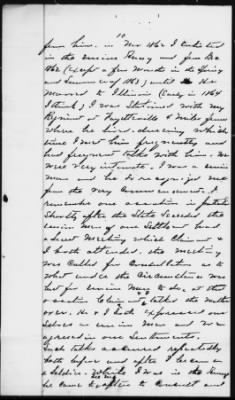 10
from him. in Nov 1862 I enlisted
in the Union Army and from Dec
1862 (except a few months in the Spring
and Summer of 1863) until he
moved to Illinois (Early in 1864
I think) I was Stationed with my
Regiment at Fayetteville 6 miles from
where he lived. during which
time I met him frequently and
had frequent talks with him. We
were very intimate. I was a union
man and he so recognized me
from the very Commencement. I
remember one occasion in particular
Shortly after the State Seceded the
union men of our Settlement had
a Secret Meeting which Claimant &
I both attended. the Meeting
was Called for Consultation as to
what under the Circumstances was
best for union men to do, at that
occasion Claimant & I talked the matter
over. He & I both expressed our
selves as union men and we
agreed in our Sentiments.
Such talks occurred repeatedly
both before and after I became
a Soldier. While I was in the Army
he came to consult and